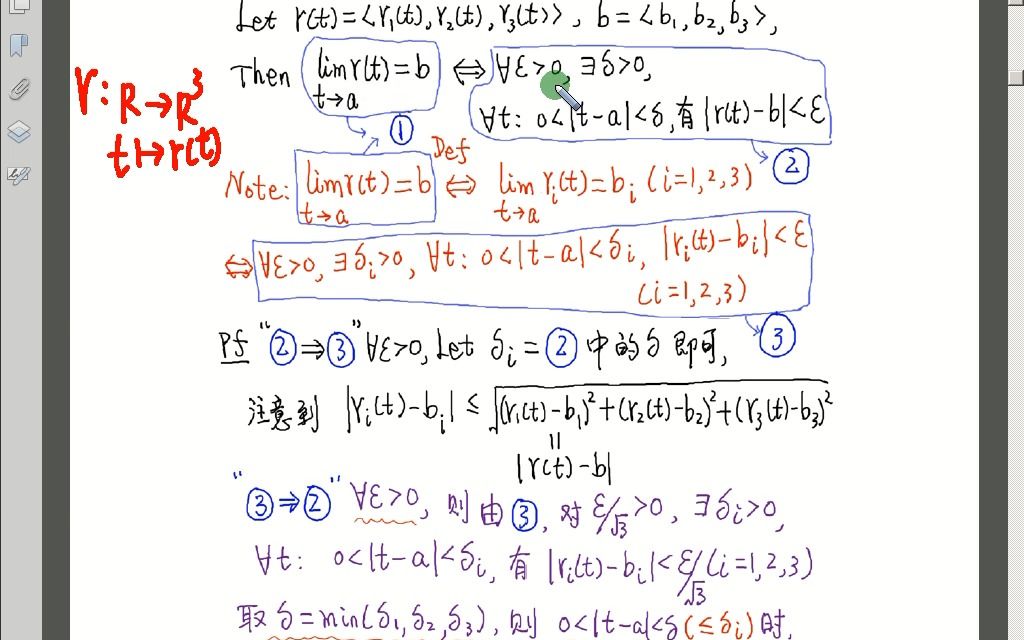 Let r(t)=<r₁(t), r₂(t), r₃(t)>, b=<b₁, b₂, b₃>,
Then lim r(t)=b ⟺ ∀ε>0, ∃δ>0,
t→a
∀t: 0<|t-a|<δ, 有 |r(t)-b|<ε
①
②
r: R→R³
t↦r(t)
Def
Note: lim r(t)=b ⟺ lim rᵢ(t)=bᵢ (i=1,2,3)
t→a t→a
⟺ ∀ε>0, ∃δᵢ>0, ∀t: 0<|t-a|<δᵢ, |rᵢ(t)-bᵢ|<ε
(i=1,2,3)
③
Pf "②⇒③" ∀ε>0, Let δᵢ=②中的δ即可,
注意到 |rᵢ(t)-bᵢ| ≤ √(r₁(t)-b₁)²+(r₂(t)-b₂)²+(r₃(t)-b₃)²
=
|r(t)-b|
"③⇒②" ∀ε>0, 则由③, 对 ε/√3>0, ∃δᵢ>0,
∀t: 0<|t-a|<δᵢ, 有 |rᵢ(t)-bᵢ|<ε/√3 (i=1,2,3)
取 δ=min(δ₁,δ₂,δ₃), 则 0<|t-a|<δ(≤δᵢ)时,